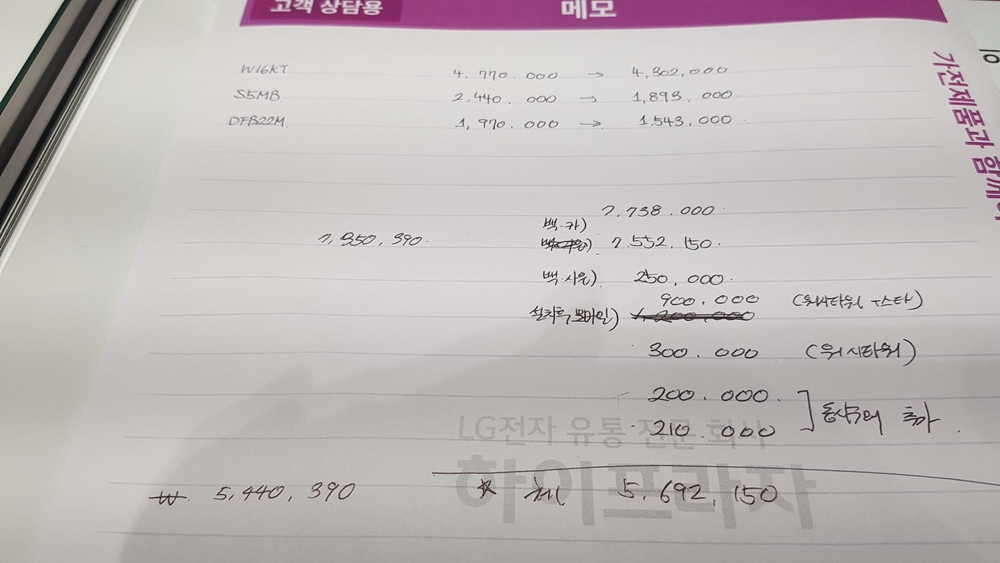 고객 상담용
메모
가전제품과 함께
W16KT 4.770.000 → 4,302,000
S5MB 2.440.000 → 1,893,000
DFB22M 1,970.000 → 1.543,000
7.738.000
7,350,390. 백.카) 7.552.150.
백.사은) 250,000.
900.000 (워시타워, +스타)
설치후,모바일) 1,200,000
300.000 (워시타워)
200.000.
210.000 추가
LG전자 유통 전문 회사
하이프라자
₩ 5,440,390 체 5,692,150